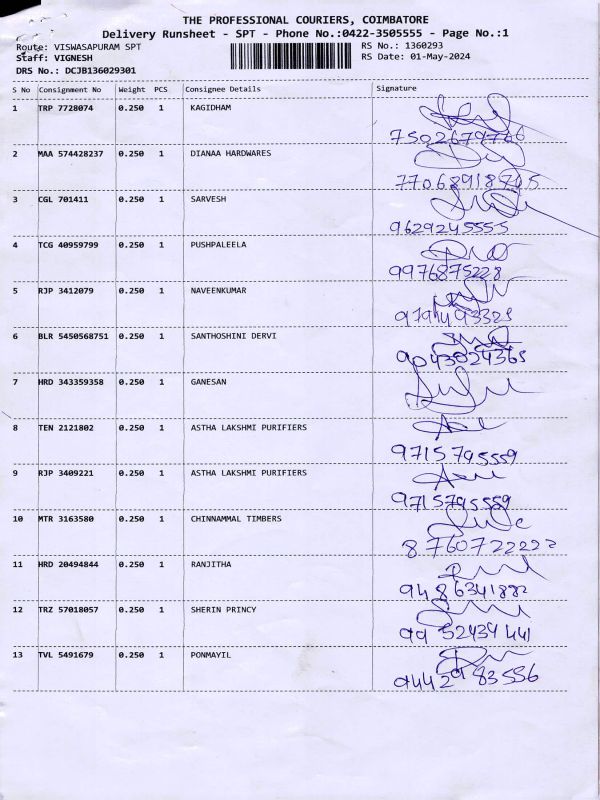 THE PROFESSIONAL COURIERS, COIMBATORE
Delivery Runsheet - SPT - Phone No.:0422-3505555 - Page No.:1
Route: VISWASAPURAM SPT RS No.: 1360293
Staff: VIGNESH RS Date: 01-May-2024
DRS No.: DCJB136029301
S No Consignment No Weight PCS Consignee Details Signature
1 TRP 7728074 0.250 1 KAGIDHAM
7502679766
2 MAA 574428237 0.250 1 DIANAA HARDWARES
3 CGL 701411 0.250 1 SARVESH
9629245555
4 TCG 40959799 0.250 1 PUSHPALEELA
9976875228
5 RJP 3412079 0.250 1 NAVEENKUMAR
6 BLR 5450568751 0.250 1 SANTHOSHINI DERVI
9043824365
7 HRD 343359358 0.250 1 GANESAN
8 TEN 2121802 0.250 1 ASTHA LAKSHMI PURIFIERS
9715795559
9 RJP 3409221 0.250 1 ASTHA LAKSHMI PURIFIERS
9715795559
10 MTR 3163580 0.250 1 CHINNAMMAL TIMBERS
8760722222
11 HRD 20494844 0.250 1 RANJITHA
9486341882
12 TRZ 57018057 0.250 1 SHERIN PRINCY
9952434441
13 TVL 5491679 0.250 1 PONMAYIL
9442983556